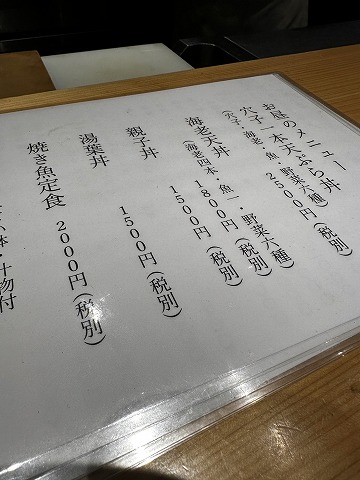 お昼のメニュー
穴子一本天ぷら丼
（穴子・海老・魚・野菜六種）
2500円（税別）
海老天丼
（海老四本・魚一・野菜六種）
1800円（税別）
親子丼
1500円（税別）
湯葉丼
1500円（税別）
焼き魚定食
2000円（税別）
小鉢・汁物付